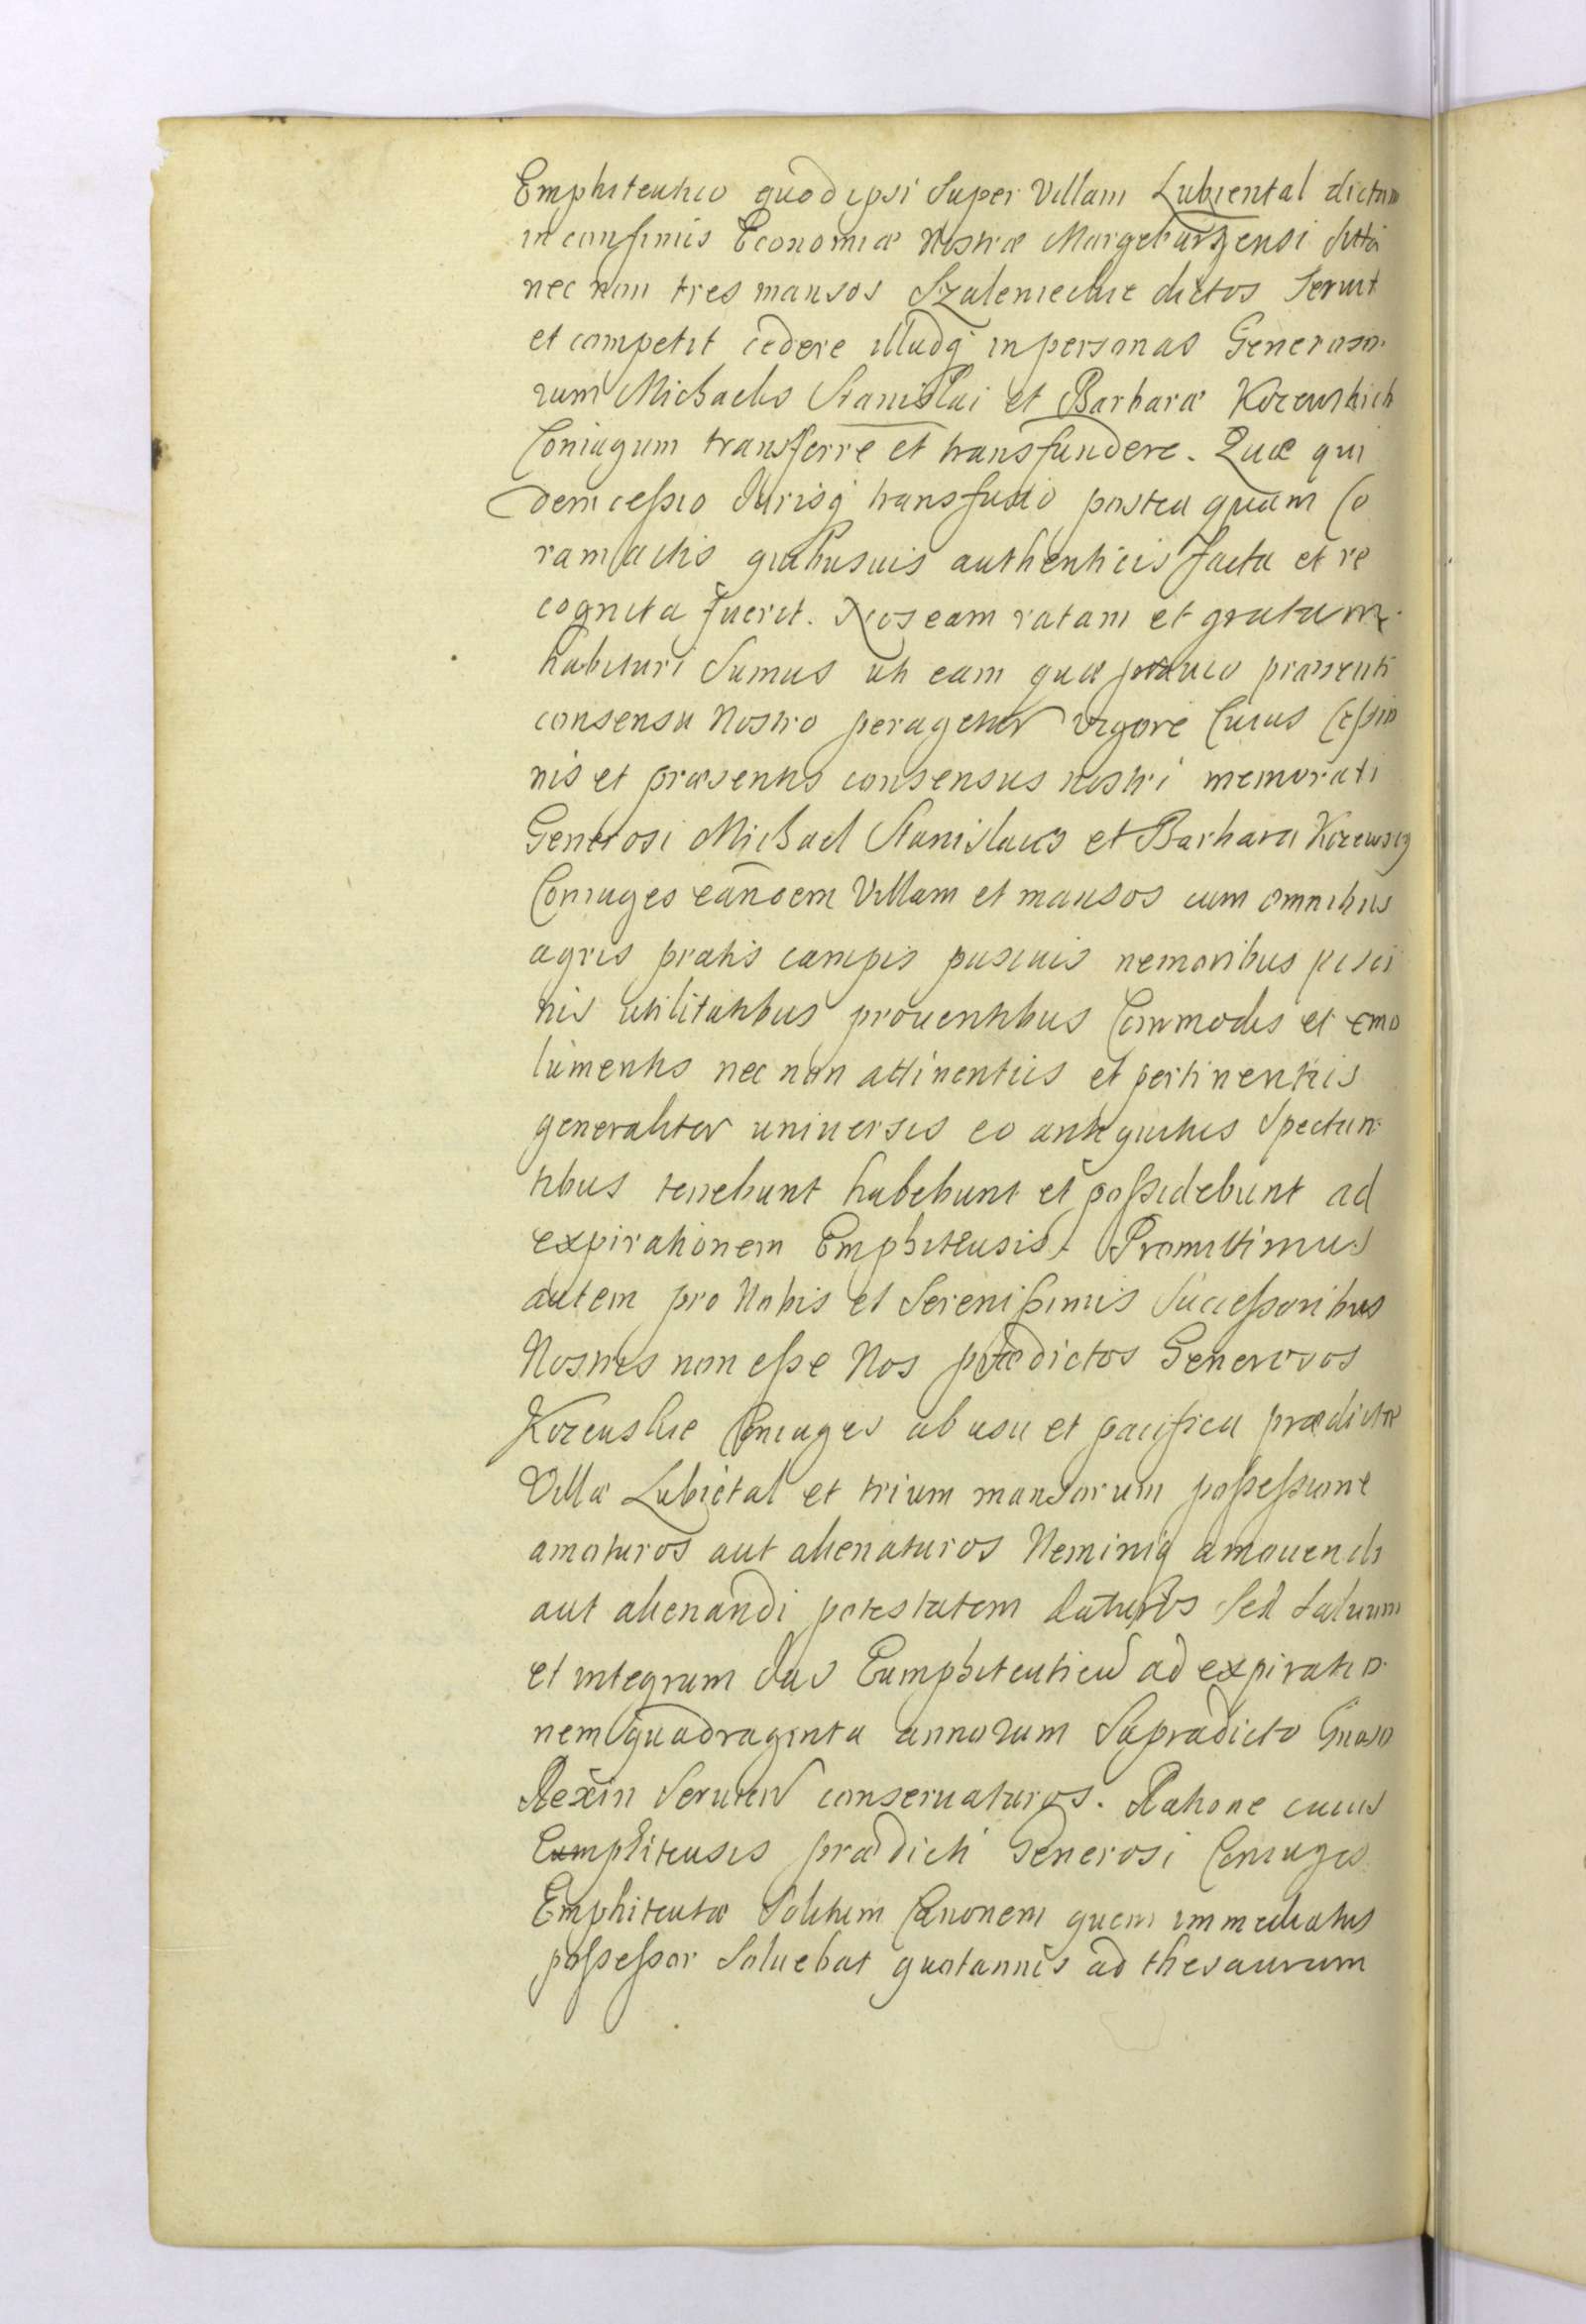 Emphiteutico quod ipsi Super Villam Lubiental dictam
in confiniis Economiæ Nostræ Margeburgensi Sitta
nec non tres mansos Szalenieckie dictos Servit
et competit cedere illudq in personas Generoso-
rum Michaelis Stanislai et Barbaræ Korewskich
Coniugum transferre et transfundere. Quæ qui
dem cessio Jurisq transfusio postea quam Co
ram actis quibusuis authenticis facta et re
cognita fuerit. Nos eam ratam et gratam
habituri Sumus uti eam quæ prævio præsenti
consensu Nostro peragetur vigore Cuius Cessio
nis et præsentis consensus nostri memorati
Generosi Michael Stanislaus et Barbara Korewscy
Coniuges eandem Villam et mansos cum omnibus
agris pratis campis pascuis nemoribus pisci
nis utilitatibus prouentibus Commodis et emo
lumentis nec non attinentiis et pertinentiis
generaliter uniuersis eo antiquitus Spectan-
tibus tenebunt habebunt et possidebunt ad
expirationem Emphiteusis. Promittimus
autem pro Nobis et Serenissimis Successoribus
Nostris non esse Nos prædictos Generosos
Korewskie Coniuges ab usu et pacifica prædictæ
Villæ Lubietal et trium mansorum possessione
amoturos aut alienaturos Neminiq amouendi
aut alienandi potestatem daturos Sed Saluum
et integrum Jus Eumphiteuticu ad expiratio-
nem quadraginta annorum Supradicto
Rexin Seruien conseruaturos. Ratione cuius
Eumphiteusis prædicti Generosi Coniuges
Emphiteutæ Solitum Canonem quem immediatus
possessor Soluebat quotannis ad thesaurum